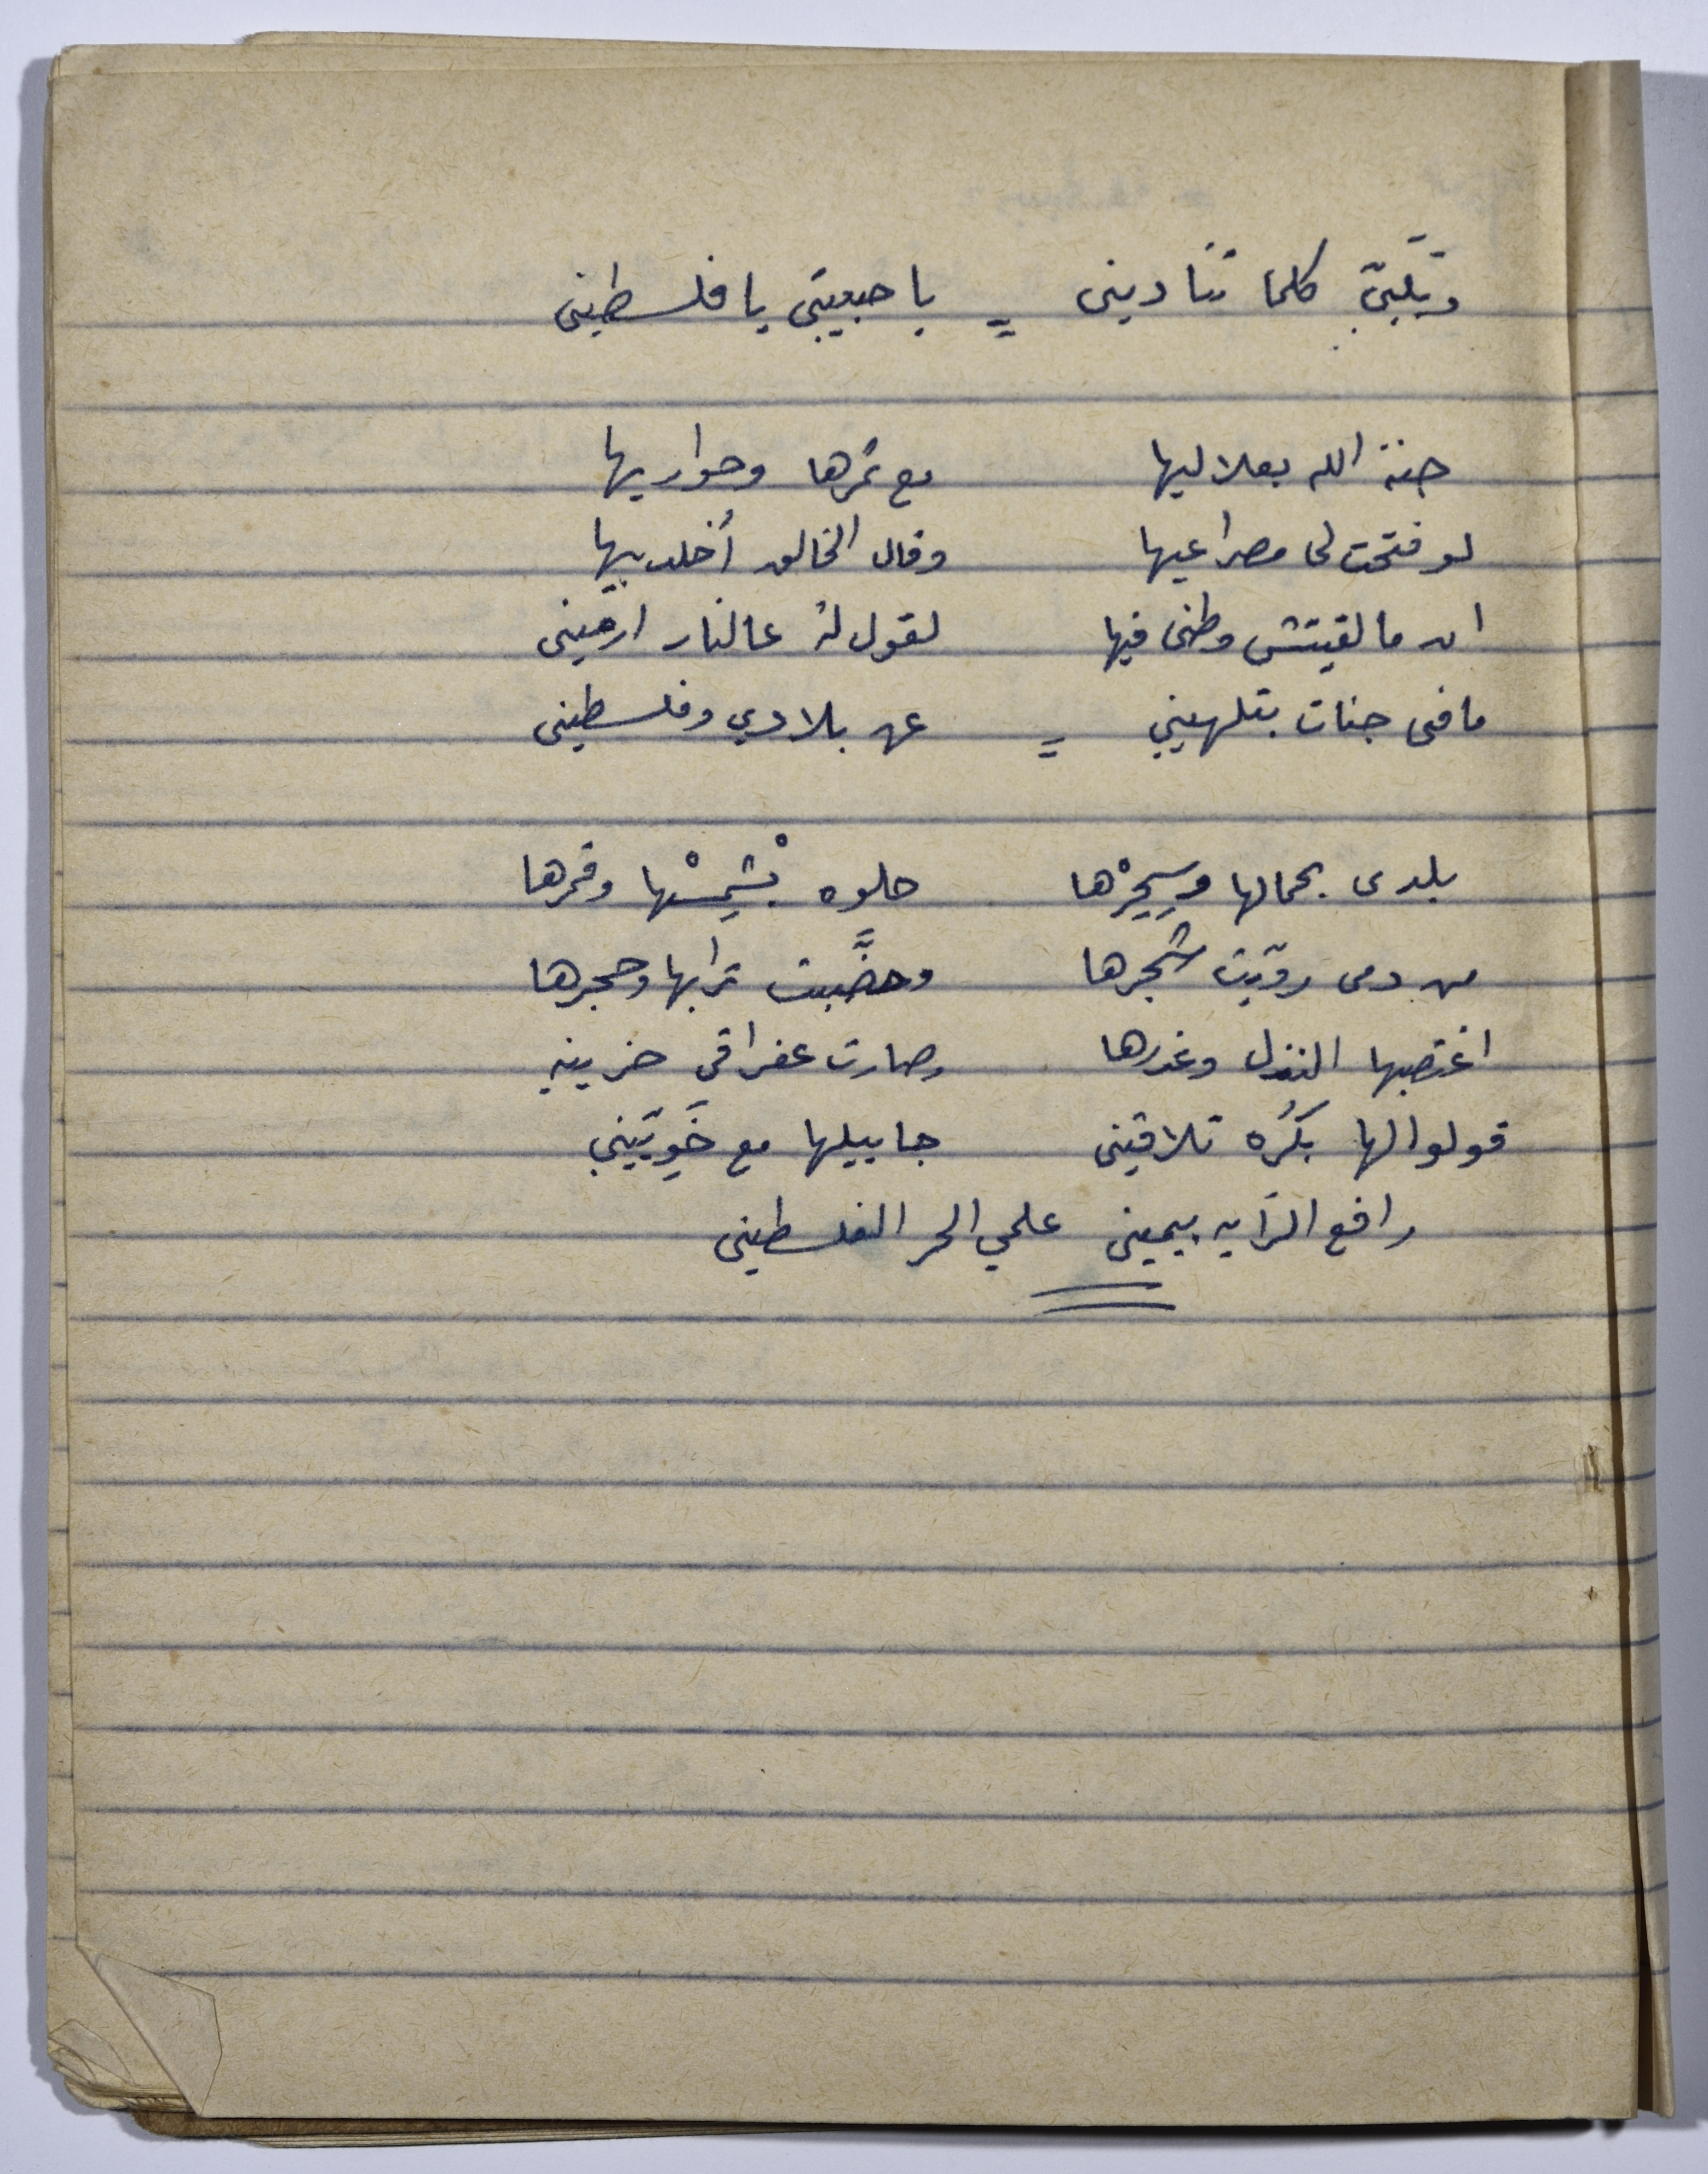 وتلبّي كلما تناديني = يا حبيبتي يا فلسطيني
جنة الله بعلاليها مع ثمرها وحواريها
لو فتحت لي مصراعيها وقال الخالق أخلد بيها
ان ما لقيتش وطني فيها لقول لهُ عالنار ارميني
ما في جنات بتلهيني = عن بلادي وفلسطيني
بلدي بجمالها وسِحِرْها حلوه بْشَمِسْها وقمرها
من دمي روّيت شجرها وخضَّبت ترابها وحجرها
اغتصبها النذل وغدرها وصارت عفراقي حزينه
قولوا لها بكُره تلاقيني جاييلها مع خَويّتيني
رافع الرّايه بيميني علمي الحر الفلسطيني